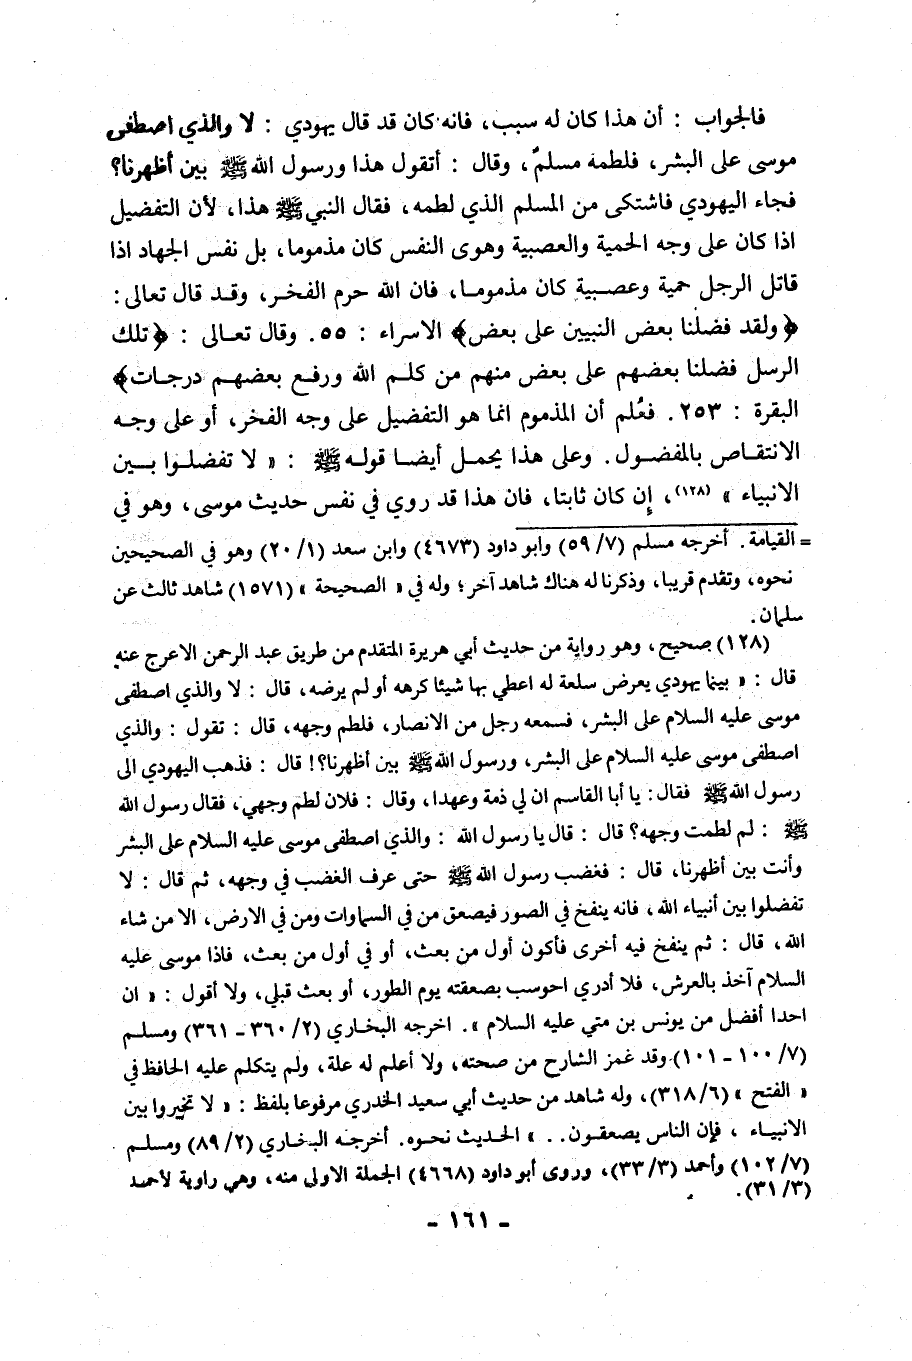 فالجواب : أن هذا كان له سبب، فانه كان قد قال يهودي : لا والذي اصطفى
موسى على البشر، فلطمه مسلم، وقال : أتقول هذا ورسول الله ﷺ بين أظهرنا؟
فجاء اليهودي فاشتكى من المسلم الذي لطمه، فقال النبي ﷺ هذا، لأن التفضيل
اذا كان على وجه الحمية والعصبية وهوى النفس كان مذموما، بل نفس الجهاد اذا
قاتل الرجل حمية وعصبية كان مذموما، فان الله حرم الفخر، وقد قال تعالى :
﴿ولقد فضلنا بعض النبيين على بعض﴾ الاسراء : ٥٥. وقال تعالى : ﴿تلك
الرسل فضلنا بعضهم على بعض منهم من كلم الله ورفع بعضهم درجات﴾
البقرة : ٢٥٣. فعُلم أن المذموم انما هو التفضيل على وجه الفخر، أو على وجه
الانتقاص بالمفضول. وعلى هذا يحمل أيضا قوله ﷺ : « لا تفضلوا بين
الانبياء » (١٢٨)، إن كان ثابتا، فان هذا قد روي في نفس حديث موسى، وهو في
= القيامة. أخرجه مسلم (٥٩/٧) وابو داود (٤٦٧٣) وابن سعد (٢٠/١) وهو في الصحيحين
نحوه، وتقدم قريبا، وذكرنا له هناك شاهد آخر؛ وله في « الصحيحة » (١٥٧١) شاهد ثالث عن
سلمان.
(١٢٨) صحيح، وهو رواية من حديث أبي هريرة المتقدم من طريق عبد الرحمن الاعرج عنه
قال : « بينما يهودي يعرض سلعة له اعطي بها شيئا كرهه أو لم يرضه، قال : لا والذي اصطفى
موسى عليه السلام على البشر، فسمعه رجل من الانصار، فلطم وجهه، قال : تقول : والذي
اصطفى موسى عليه السلام على البشر، ورسول الله ﷺ بين أظهرنا؟! قال : فذهب اليهودي الى
رسول الله ﷺ فقال : يا أبا القاسم ان لي ذمة وعهدا، وقال : فلان لطم وجهي، فقال رسول الله
ﷺ : لم لطمت وجهه؟ قال : قال يا رسول الله : والذي اصطفى موسى عليه السلام على البشر
وأنت بين أظهرنا، قال : فغضب رسول الله ﷺ حتى عرف الغضب في وجهه، ثم قال : لا
تفضلوا بين أنبياء الله، فانه ينفخ في الصور فيصعق من في السماوات ومن في الارض، الا من شاء
الله، قال : ثم ينفخ فيه أخرى فأكون أول من بعث، أو في أول من بعث، فاذا موسى عليه
السلام آخذ بالعرش، فلا أدري احوسب بصعقته يوم الطور، أو بعث قبلي، ولا أقول : « ان
احدا أفضل من يونس بن متي عليه السلام ». اخرجه البخاري (٣٦٠/٢ - ٣٦١) ومسلم
(١٠٠/٧ - ١٠١) وقد غمز الشارح من صحته، ولا أعلم له علة، ولم يتكلم عليه الحافظ في
« الفتح » (٣١٨/٦)، وله شاهد من حديث أبي سعيد الخدري مرفوعا بلفظ : « لا تخيروا بين
الانبياء ، فإن الناس يصعقون . . » الحديث نحوه. أخرجه البخاري (٨٩/٢) ومسلم
(١٠٢/٧) وأحمد (٣٣/٣)، وروى أبو داود (٤٦٦٨) الجملة الاولى منه، وهي راوية لأحمد
(٣١/٣).
- ١٦١ -